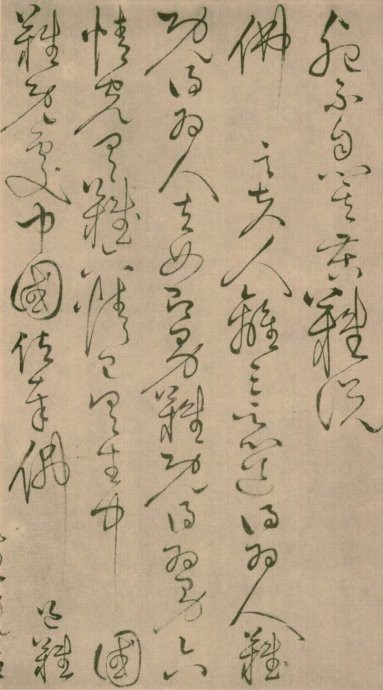 難說
佛言夫人離三惡道得為人難
既得為人去女即男難既得為男六
情完具難六情已具生中國
難既處中國值奉佛道難